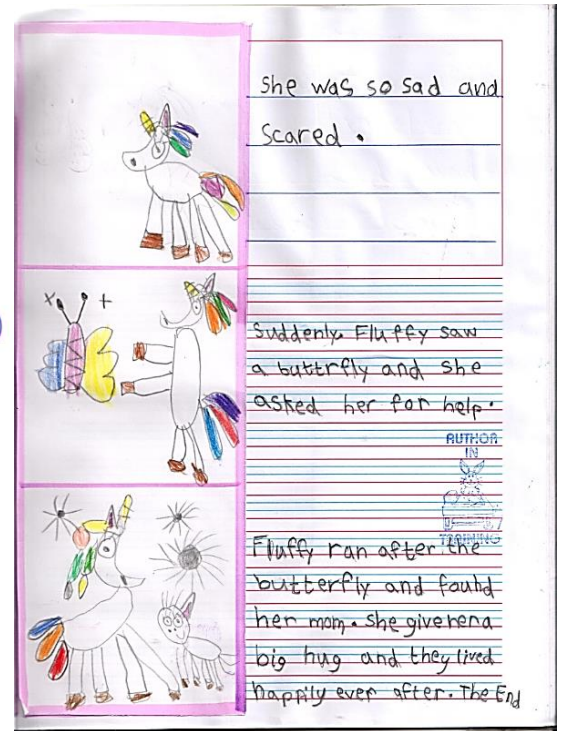 She was so sad and
scared.
Suddenly, Fluffy saw
a buttrfly and she
asked her for help.
AUTHOR
IN
TRAINING
Fluffy ran after the
butterfly and found
her mom. She giverera
big hug and they lived
happily ever after. The End